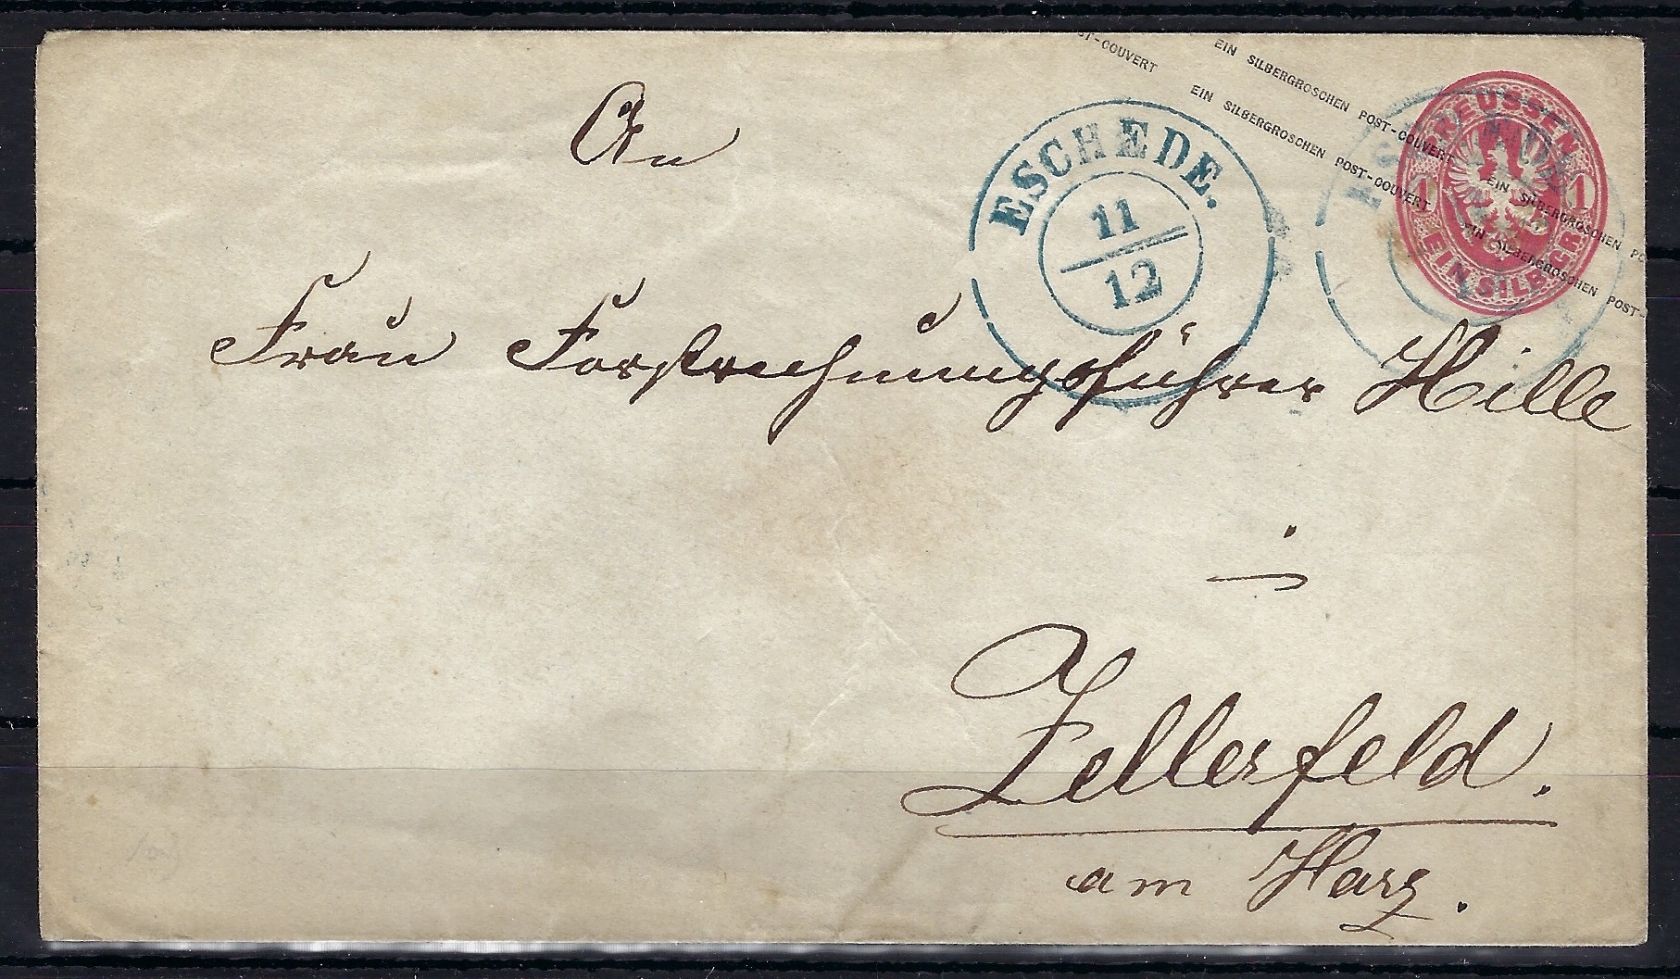 ST-COUVERT
EIN SILBERGROSCHEN POST-COUVERT EIN SILBERGROSCHEN PO
EIN SILBERGROSCHEN POST-COUVERT EIN SILBERGROSCHEN POST-
PREUSSEN
1 1
EIN SILBGR.
ESCHEDE.
11
12
An
Frau Forstrechnungsführer Hille
in
Zellerfeld.
am Harz.